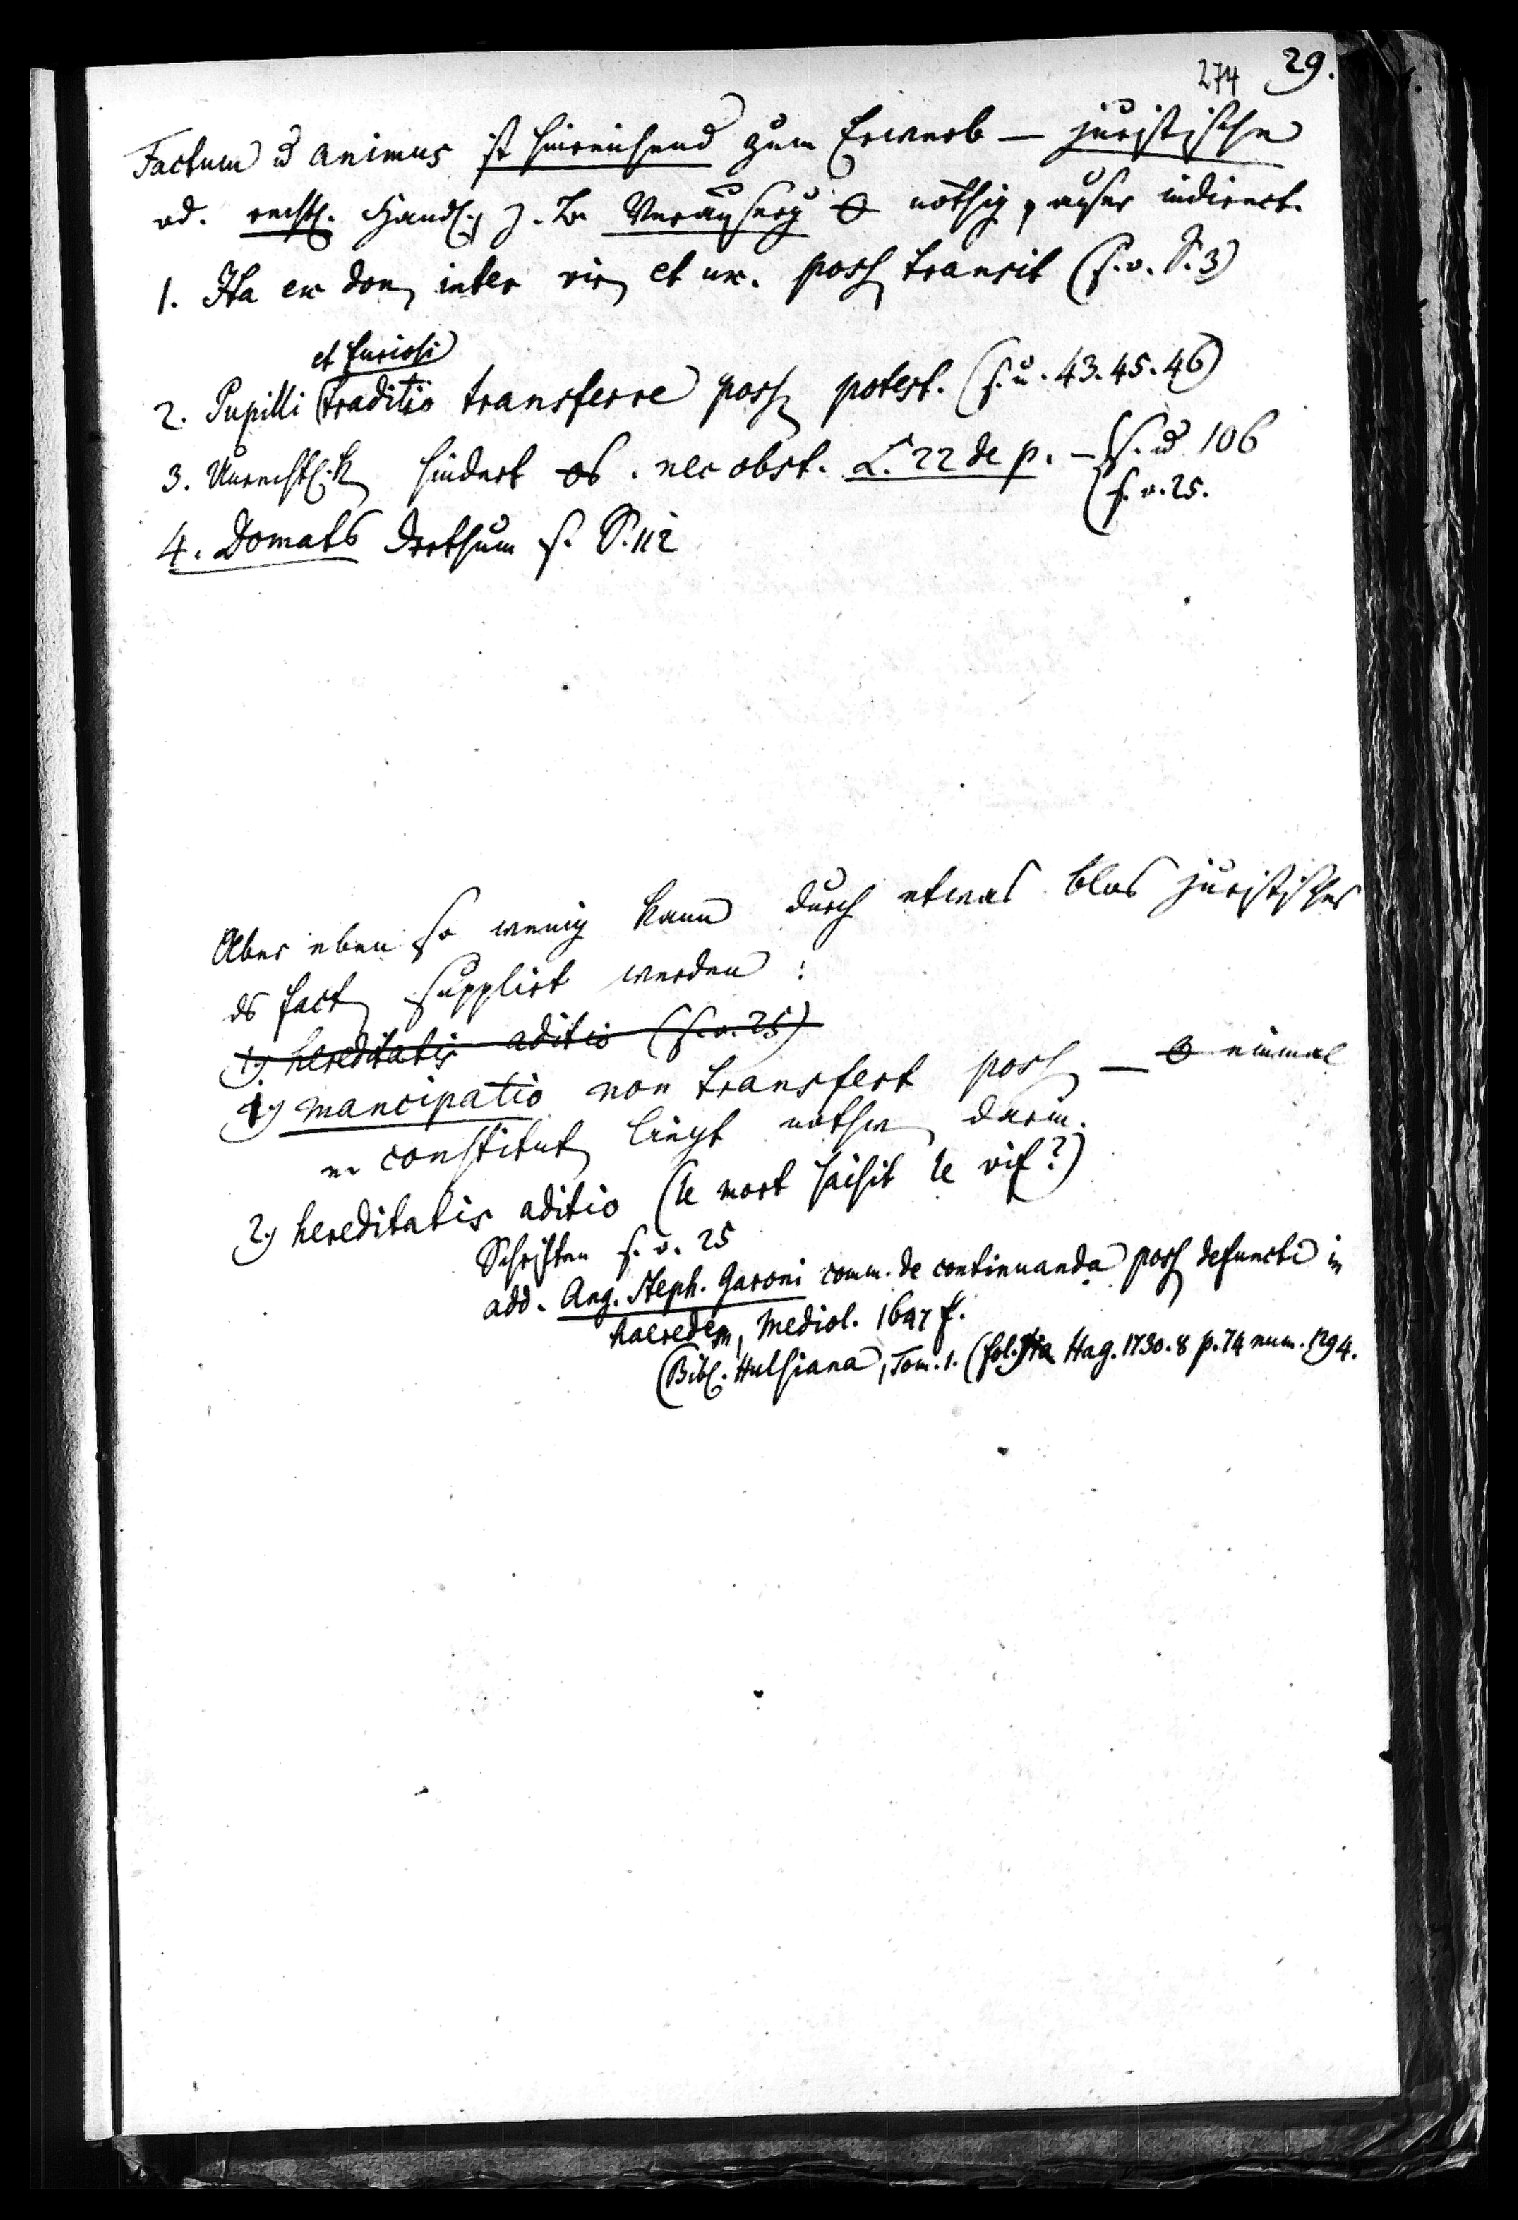 274 29.
Factum u animus ist hinreichend zum Erwerb — juristische
od. rechtl. Handl. z. B. Veräußerg nöthig, außer indirect.
1. Ita ex don inter vir et ux. poss transit (s. o. S. 3)
et furiosi
2. Pupilli traditio transferre poss potest. (s. u. 43. 45. 46)
3. Unrechtl.k hindert . nec obst. L. 22 de p. — (S. u 106
(s. o. 25.
4. Domats Irrthum s. S. 112
Aber eben so wenig kann durch etwas blos juristisches
ds fact supplirt werden :
1.) hereditatis aditio (s. o. 25)
1.) mancipatio non transfert poss — einmal
constitut liegt nothw darin.
2.) hereditatis aditio (le mort saisit le vif?)
Schriften s. o. 25
add. Ang. Steph. Garoni comm. de continuanda poss defuncti in
haeredem, Mediol. f.
(Bibl. Hulsiana, Tom. 1. (fol.) Hag. 1730. 8 p. 74 num. 1294.